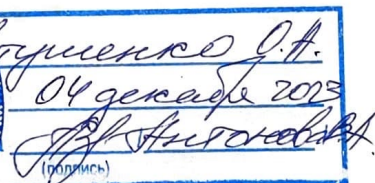 тушенко О.А.
04 декабря 2023
Антонова В.А.
(подпись)